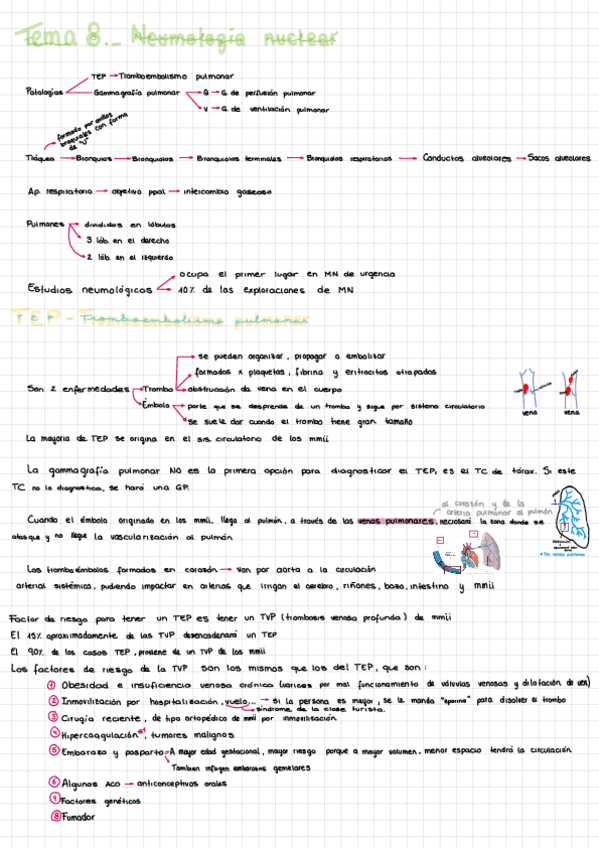 Tema 8._ Neumología nuclear
TEP → Tromboembolismo pulmonar
Patologías Gammagrafía pulmonar → Q → G. de perfusión pulmonar
V → G. de ventilación pulmonar
formado por anillos
branquiales con forma
de "U"
Tráquea → Bronquios → Bronquiolos → Bronquiolos terminales → Bronquiolos respiratorios → Conductos alveolares → Sacos alveolares
Ap. respiratorio → objetivo ppal → intercambio gaseoso
Pulmones → divididos en lóbulos
3 lób. en el derecho
2 lób. en el izquierdo
ocupa el primer lugar en MN de urgencia
Estudios neumológicos → 10% de las exploraciones de MN
TEP - Tromboembolismo pulmonar
se pueden organizar, propagar o embolizar
formados x plaquetas, fibrina y eritrocitos atrapados
Son 2 enfermedades → Trombo → obstrucción da vena en el cuerpo
Émbolo → parte que se desprende de un trombo y sigue por sistema circulatorio
se suele dar cuando el trombo tiene gran tamaño
vena vena
La mayoría de TEP se origina en el sis. circulatorio de los mmii
La gammagrafía pulmonar NO es la primera opción para diagnosticar el TEP, es el TC de tórax. Si este
TC no lo diagnostica, se hará una GP.
al corazón y de la
arteria pulmonar al pulmón
Cuando el émbolo originado en los mmii, llega al pulmón, a través de las venas pulmonares, necrosará la zona donde se
atasque y no llegue la vascularización al pulmón
Los tromboémbolos formados en corazón → van por aorta a la circulación
arterial sistémica, pudiendo impactar en arterias que irrigan el cerebro, riñones, bazo, intestino y mmii
Factor de riesgo para tener un TEP es tener un TVP (trombosis venosa profunda) de mmii
El 15% aproximadamente de las TVP desencadenará un TEP
El 90% de los casos TEP, proviene de un TVP de los mmii
Los factores de riesgo de la TVP son los mismos que los del TEP, que son:
① Obesidad e insuficiencia venosa crónica (varices por mal funcionamiento de válvulas venosas y dilatación de ven)
② Inmovilización por hospitalización, vuelo... → si la persona es mayor, se le manda "eparina" para disolver el trombo
síndrome de la clase turista.
③ Cirugía reciente, de tipo ortopédico de mmii por inmovilización
④ Hipercoagulación, tumores malignos
⑤ Embarazo y posparto → A mayor edad gestacional, mayor riesgo porque a mayor volumen, menor espacio tendrá la circulación
También influyen embarazos gemelares
⑥ Algunos ACO → anticonceptivos orales
⑦ Factores genéticos
⑧ Fumador